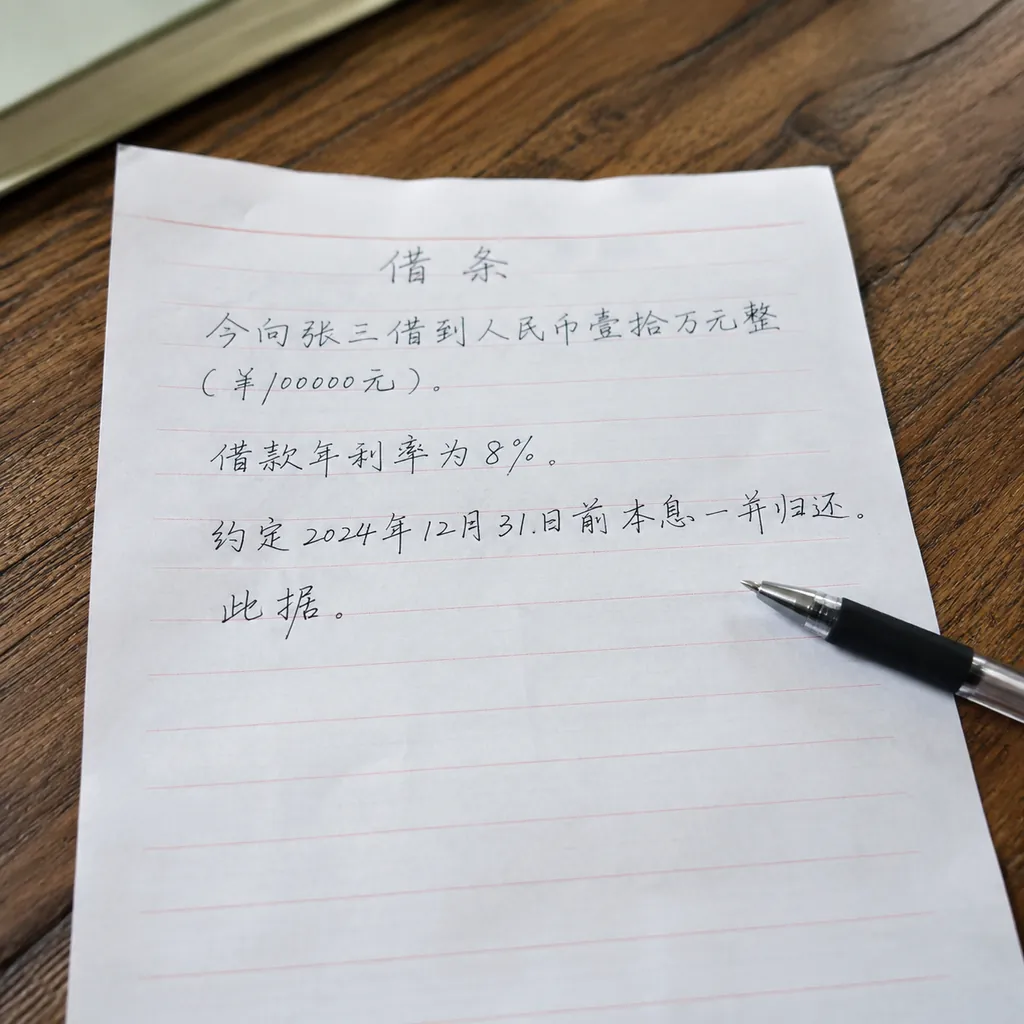 借条
今向张三借到人民币壹拾万元整
(羊100000元)。
借款年利率为8%。
约定2024年12月31.日前本息一并归还。
此据。